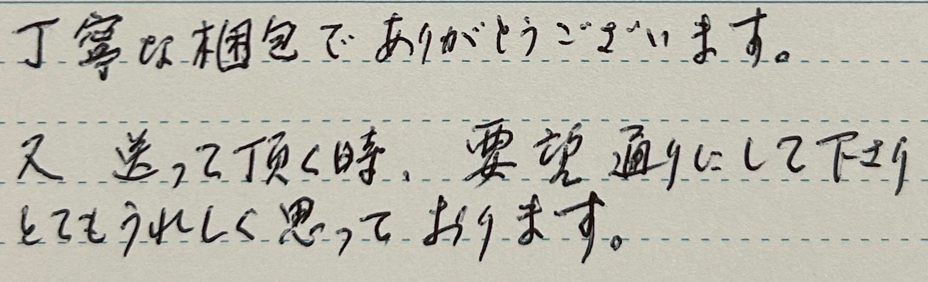 丁寧な梱包でありがとうございます。
又 送って頂く時、要望通りにして下さり
とてもうれしく思っております。